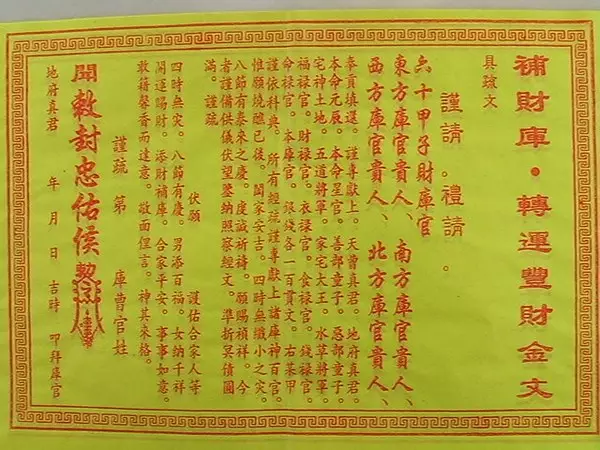 補財庫·轉運豐財金文
具疏文
謹請。禮請。
六十甲子財庫官
東方庫官貴人、南方庫官貴人、
西方庫官貴人、北方庫官貴人、
奉貢填還。謹專獻上。天曹真君。地府真君。
本命元辰。本命星官。善部童子。惡部童子。
宅神土地。五道將軍。家宅大王。水草將軍。
福祿官。財祿官。衣祿官。食祿官。錢祿官。
命祿官。本庫官。銀錢各一百貫文。右某甲
謹依科典。所有經疏謹專獻上諸庫神百官。
惟願燒醮已後。闔家安吉。四時無纖小之災。
八節有泰來之慶。度誠祈禱。願賜禎祥。今
者謹備供儀伏望鑒納照察經文。準折冥債圓
滿。謹疏
伏願護佑合家人等
四時無災。八節有慶。男添百福。女納千祥
開運賜財。添財補庫。合家平安。事事如意。
敢藉馨香而達意。敬面俚言。神其來格。
謹疏 第 庫曹官姓
開敕封忠佑侯
地府真君 年 月 日 吉時 叩拜庫官